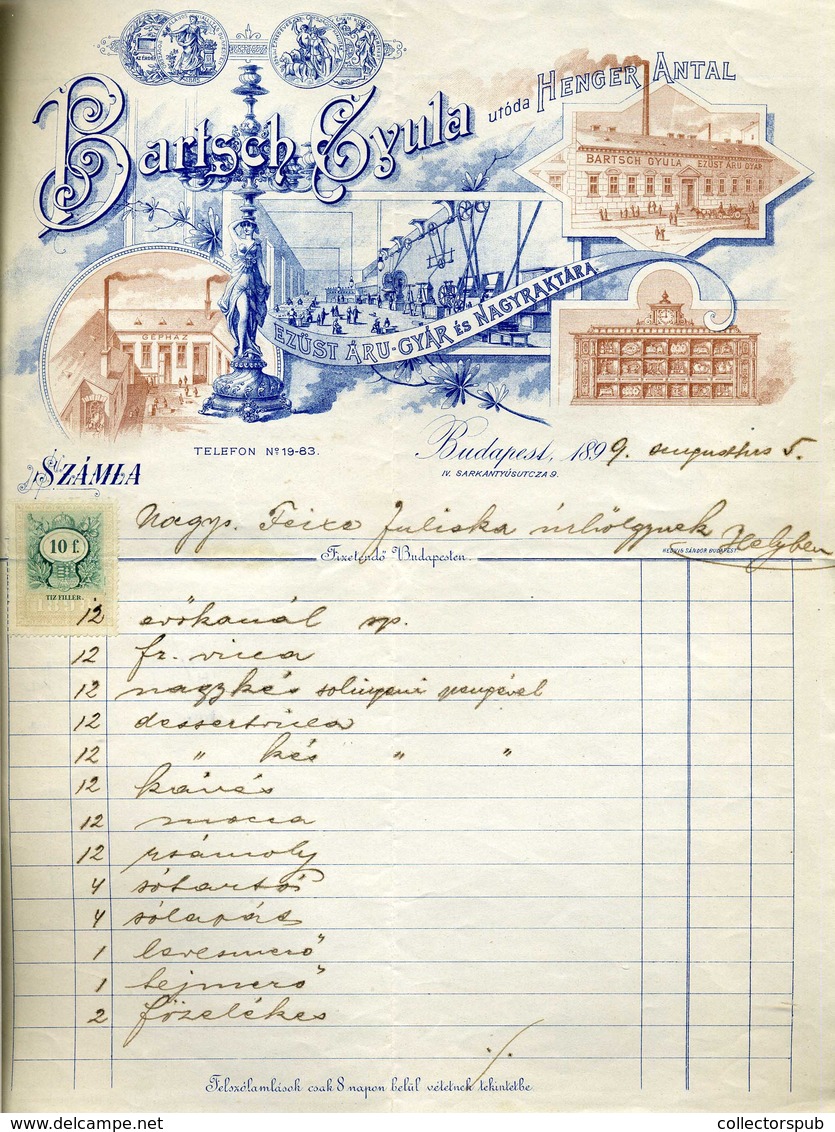 Bartsch Gyula utóda HENGER ANTAL
BARTSCH GYULA EZÜST ÁRU GYÁR
GÉPHÁZ
EZÜST ÁRU-GYÁR és NAGYRAKTÁRA.
TELEFON No 19-83.
Budapest, 1899. augusthus 5.
IV. SARKANTYÚSUTCZA 9.
SZÁMLA
Nagys. Juliska úrhölgynek Helyben
10 f.
TIZ FILLÉR.
Fizetendő Budapesten.
HEDVIG SÁNDOR BUDAPEST.
12 evőkanál sp.
12 fr. villa
12 nagykés solingeni pengével
12 dessertvilla
12 " kés " "
12 kávés
12 mocca
12 zsámoly
4 sótartó
4 sólapát
1 levesmerő
1 tejmerő
2 főzelékes
./.
Felszólamlások csak 8 napon belül vétetnek tekintetbe.
collectorspub